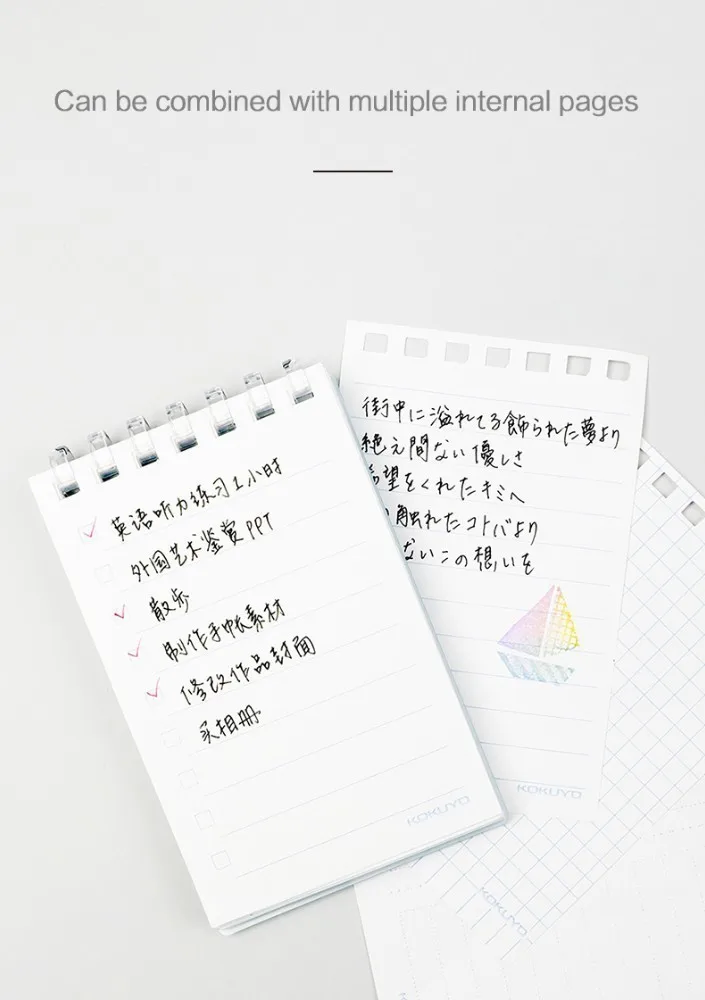 Can be combined with multiple internal pages
英语听力练习1小时
外国艺术鉴赏PPT
散步
制作手帐素材
修改作品封面
买相册
KOKUYO
街中に溢れてる飾られた夢より
絶え間ない優しさ
希望をくれたキミへ
触れたコトバより
ないこの想いを
KOKUYO
KOKUYO